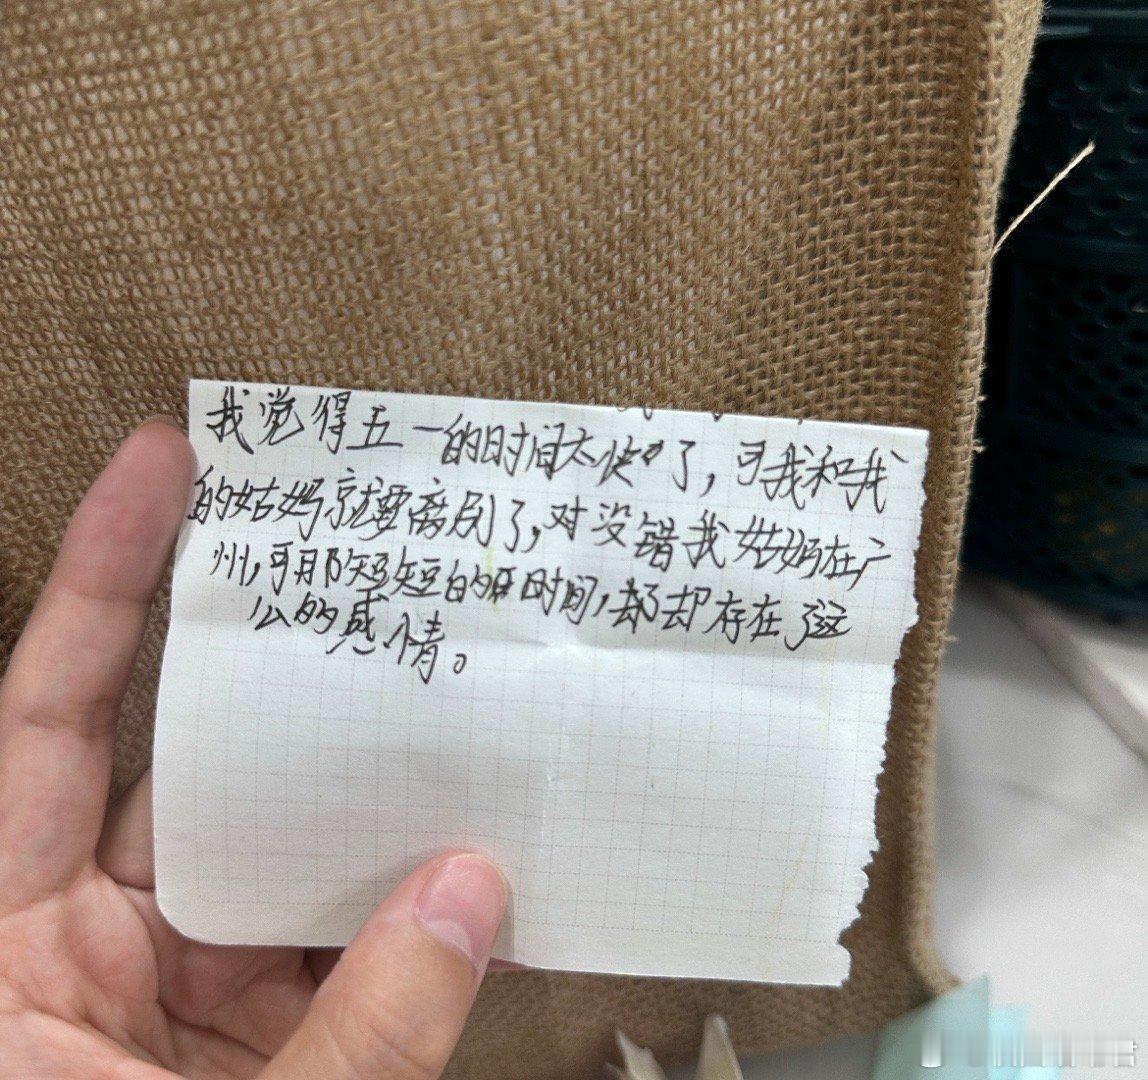 我觉得五一的时间太快了，可我和我
的姑妈就要离别了，对没错我姑妈在广
州，可那短短的时间，却存在了这
么的感情。